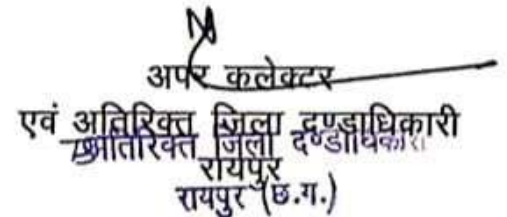 अपर कलेक्टर
एवं अतिरिक्त जिला दण्डाधिकारी
अतिरिक्त जिला दण्डाधिकारी
रायपुर
रायपुर (छ.ग.)